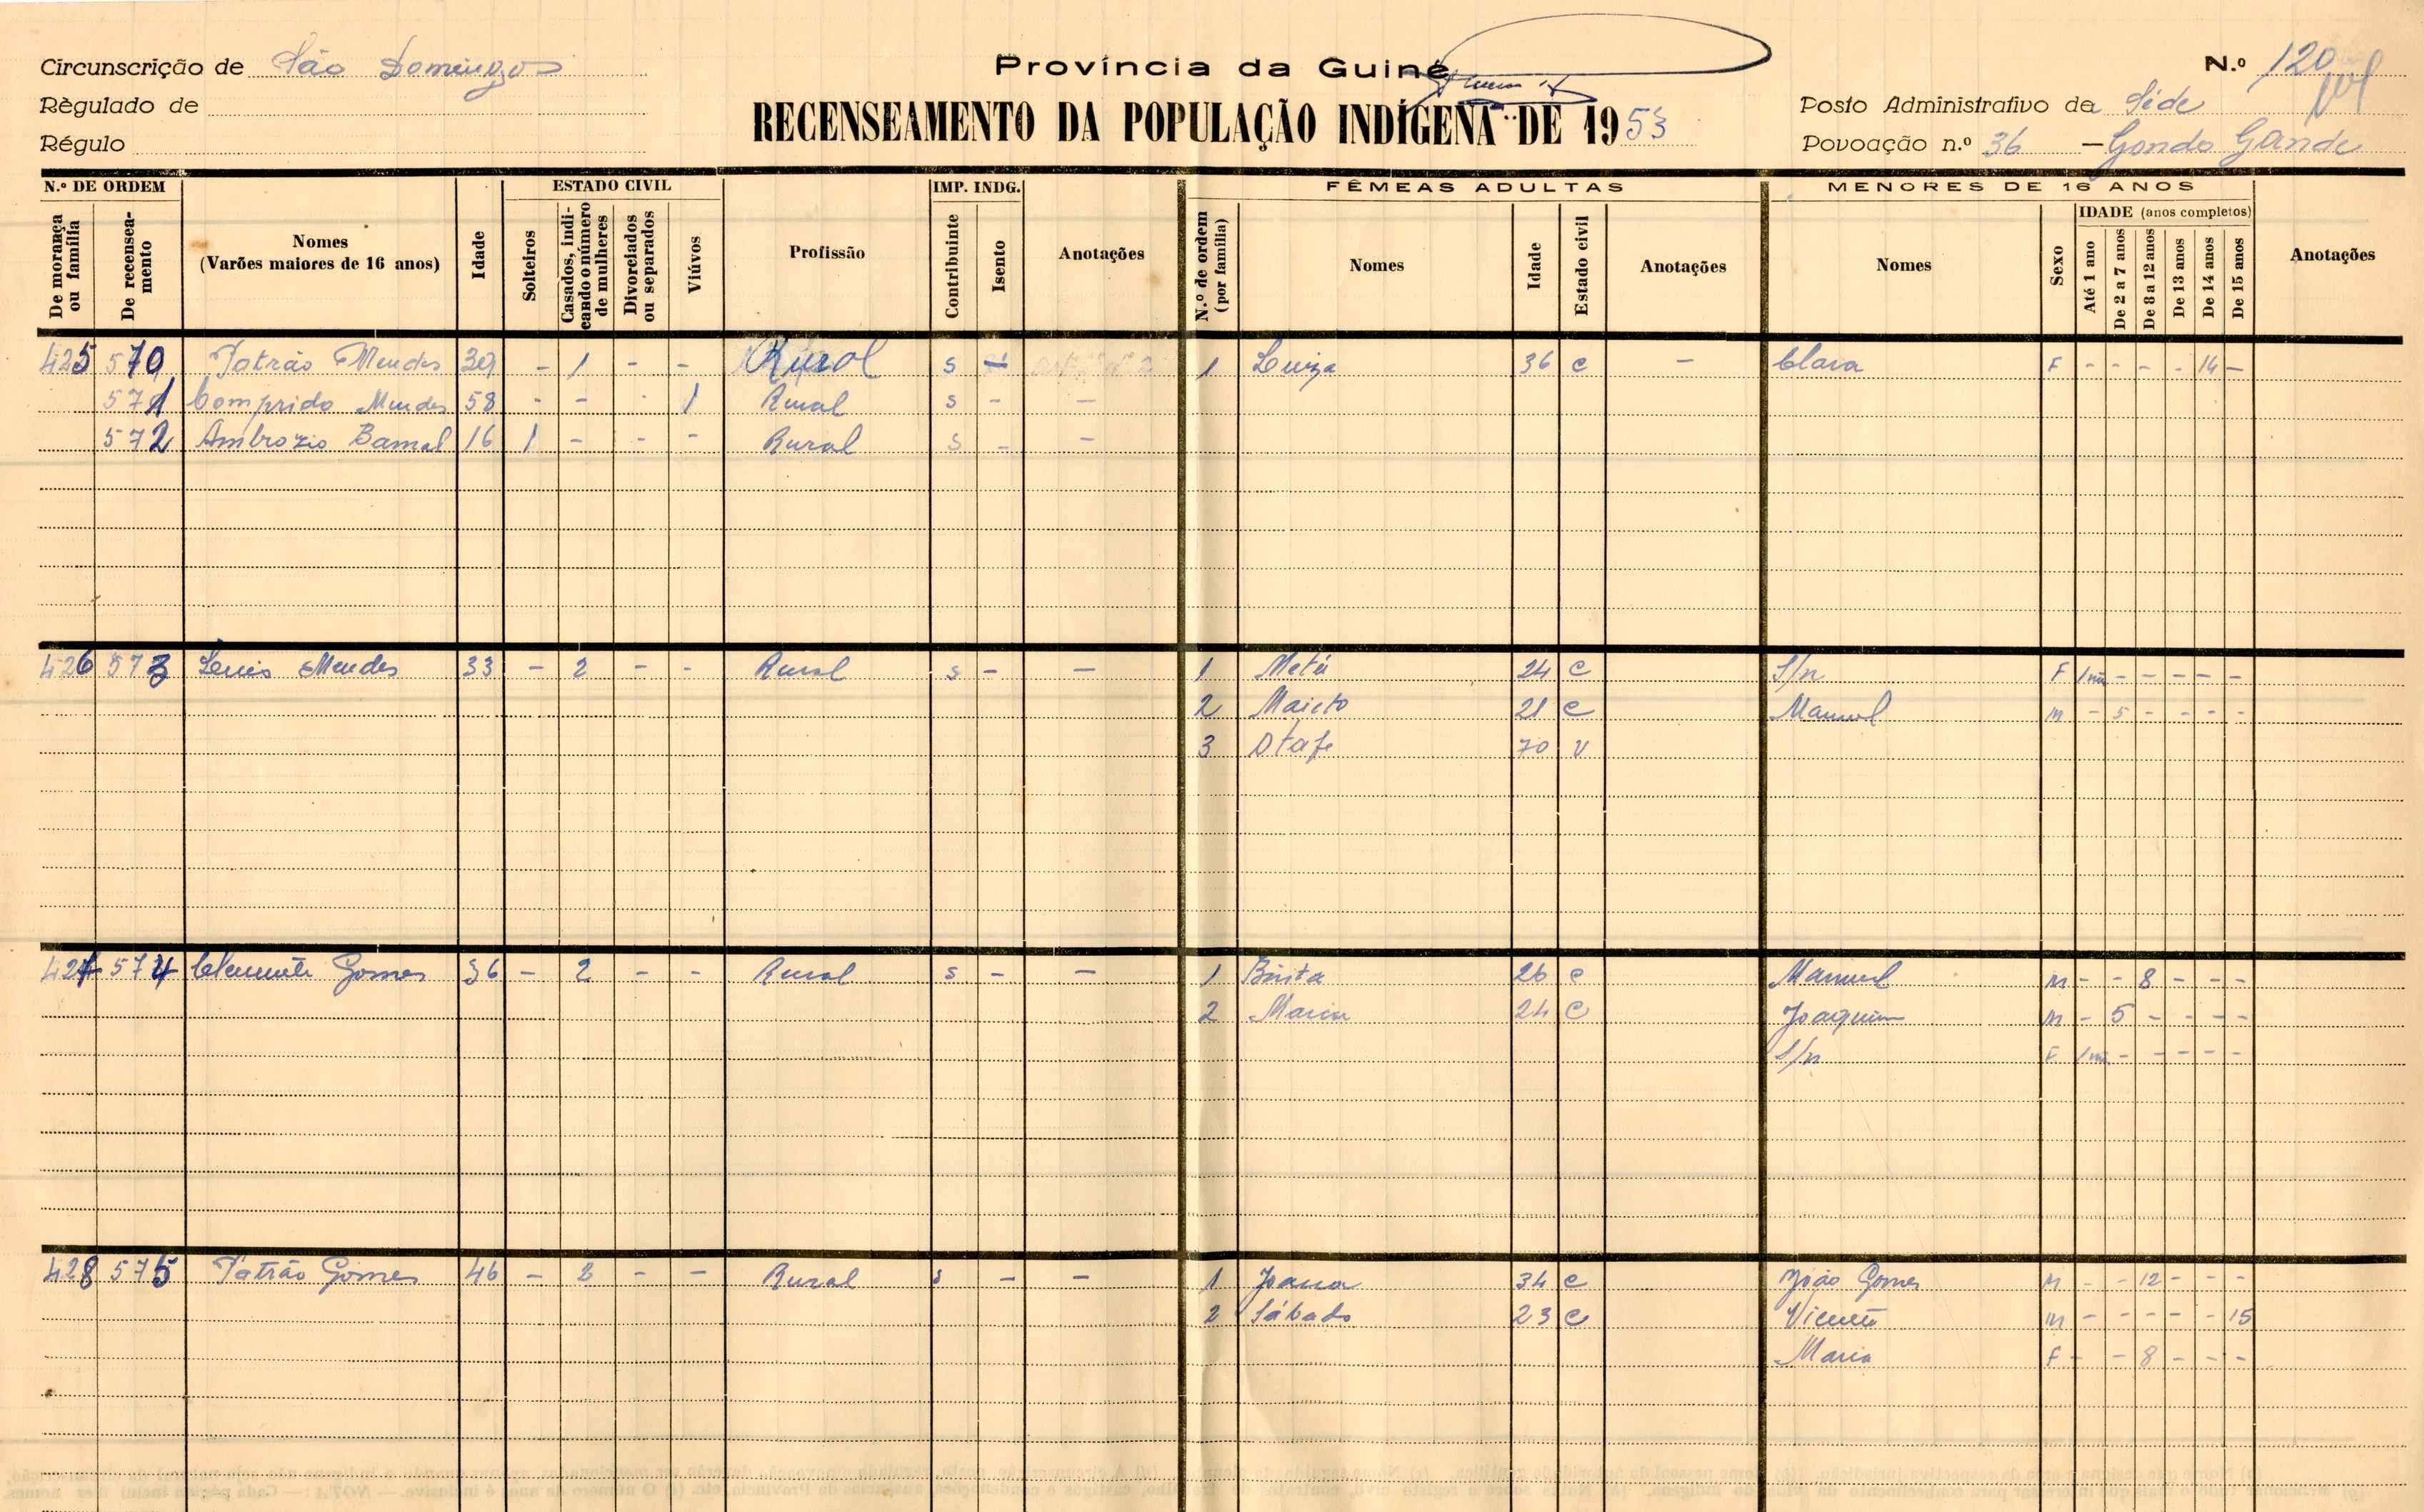 Circunscrição de São Domingos
Règulado de
Régulo
Província da Guiné
RECENSEAMENTO DA POPULAÇÃO INDÍGENA DE 1953
N.º 120
Posto Administrativo da Séde
Povoação n.º 36 - Gondo Gande
N.º DE ORDEM
De morança ou família
De recenseamento
Nomes
(Varões maiores de 16 anos)
Idade
ESTADO CIVIL
Solteiros
Casados, indicando o número de mulheres
Divorciados ou separados
Viúvos
Profissão
IMP. INDG.
Contribuinte
Isento
Anotações
FÊMEAS ADULTAS
N.º de ordem (por família)
Nomes
Idade
Estado civil
Anotações
MENORES DE 16 ANOS
Nomes
Sexo
IDADE (anos completos)
Até 1 ano
De 2 a 7 anos
De 8 a 12 anos
De 13 anos
De 14 anos
De 15 anos
Anotações
425 570 Patrão Mendes 39 - 1 - - Rural s 1 Luiza 36 c - Clara F - - - - 14 -
571 Comprido Mendes 58 - - - 1 Rural s - -
572 Ambrozio Bamal 16 1 - - - Rural s - -
426 573 Luis Mendes 33 - 2 - - Rural s - - 1 Metá 24 c S/n F 1m - - - - -
2 Maieto 21 c Manuel m - 5 - - - -
3 Otafe 70 v
427 574 Clemente Gomes 36 - 2 - - Rural s - - 1 Binta 26 c Manuel m - - 8 - - -
2 Maria 24 c Joaquim m - 5 - - - -
S/n F 1m - - - - -
428 575 Patrão Gomes 46 - 2 - - Rural s - - 1 Joana 34 c João Gomes m - - 12 - - -
2 Sábado 23 c Vicente m - - - - - 15
Maria F - - 8 - - -